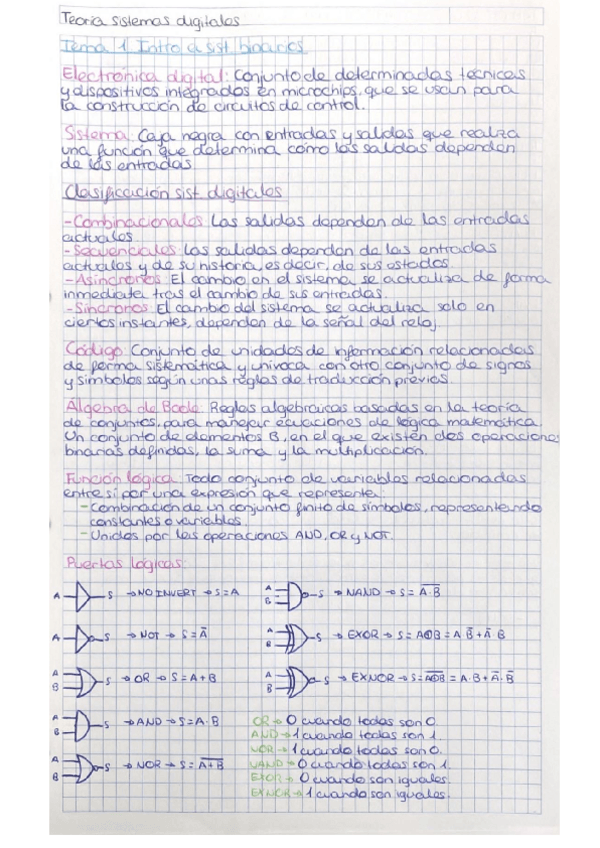 Teoría sistemas digitales
Tema 1 Intro a sist. binarios
Electrónica digital: Conjunto de determinadas técnicas
y dispositivos integrados en microchips, que se usan para
la construcción de circuitos de control.
Sistema: Caja negra con entradas y salidas que realiza
una función que determina cómo las salidas dependen
de las entradas
Clasificación sist. digitales
-Combinacionales: Las salidas dependen de las entradas
actuales
-Secuenciales: Las salidas dependen de las entradas
actuales y de su historia, es decir, de sus estados
-Asíncronos: El cambio en el sistema se actualiza de forma
inmediata tras el cambio de sus entradas.
-Síncronos: El cambio del sistema se actualiza solo en
ciertos instantes, dependen de la señal del reloj
Código: Conjunto de unidades de información relacionadas
de forma sistemática y unívoca con otro conjunto de signos
y símbolos según unas reglas de traducción previas.
Álgebra de Boole: Reglas algebraicas basadas en la teoría
de conjuntos, para manejar ecuaciones de lógica matemática.
Un conjunto de elementos B, en el que existen dos operaciones
binarias definidas, la suma y la multiplicación.
Función lógica: Todo conjunto de variables relacionadas
entre si por una expresión que representa:
- Combinación de un conjunto finito de símbolos, representando
constantes o variables
- Unidos por las operaciones AND, OR y NOT.
Puertas lógicas:
A S → NO INVERT → S = A
A B S → NAND → S = \overline{A·B}
A S → NOT → S = Ā
A B S → EXOR → S = A⊕B = A B̄ + Ā B
A B S → OR → S = A + B
A B S → EXNOR → S = \overline{A⊕B} = A·B + Ā·B̄
A B S → AND → S = A·B
A B S → NOR → S = \overline{A+B}
OR → 0 cuando todas son 0.
AND → 1 cuando todas son 1.
NOR → 1 cuando todas son 0.
NAND → 0 cuando todas son 1.
EXOR → 0 cuando son iguales.
EXNOR → 1 cuando son iguales.